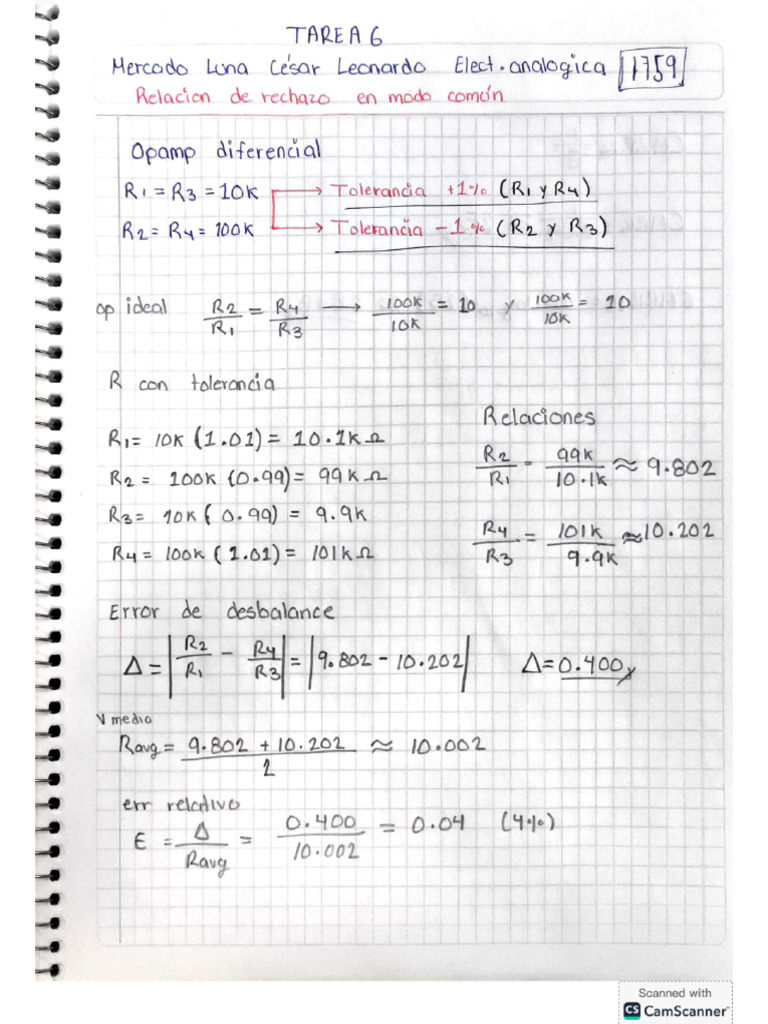 TAREA 6
Mercado Luna César Leonardo Elect. analogica 1759
Relacion de rechazo en modo común
Opamp diferencial
R1 = R3 = 10K → Tolerancia +1% (R1 y R4)
R2 = R4 = 100K → Tolerancia -1% (R2 y R3)
op ideal R2/R1 = R4/R3 → 100K/10K = 10 y 100K/10K = 10
R con tolerancia
Relaciones
R1= 10K (1.01) = 10.1K Ω
R2/R1 = 99K/10.1K ≈ 9.802
R2 = 100K (0.99) = 99K Ω
R3 = 10K (0.99) = 9.9K
R4/R3 = 101K/9.9K ≈ 10.202
R4 = 100K (1.01) = 101K Ω
Error de desbalance
Δ = |R2/R1 - R4/R3| = |9.802 - 10.202| Δ = 0.400
V medio
Ravg = 9.802 + 10.202/2 ≈ 10.002
err relativo
E = Δ/Ravg = 0.400/10.002 = 0.04 (4%)
Scanned with
CS CamScanner